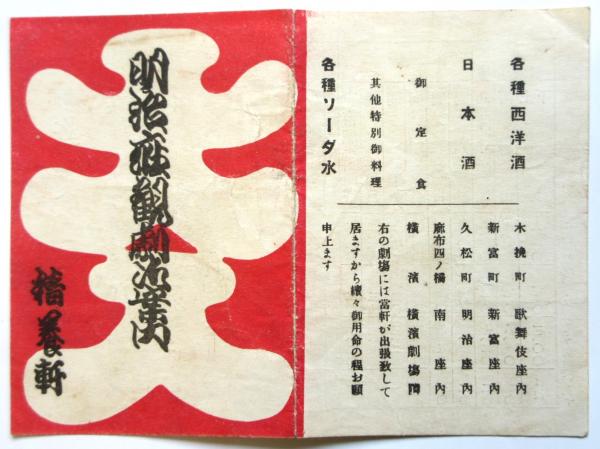 各種西洋酒
日本酒
御定食
其他特別御料理
各種ソーダ水
木挽町 歌舞伎座內
新富町 新富座內
久松町 明治座內
麻布四ノ橋 南座內
橫濱 橫濱劇場內
右の劇塲には當軒が出張致して
居ますから續々御用命の程お願
申上ます
明治座観劇御案内
精養軒